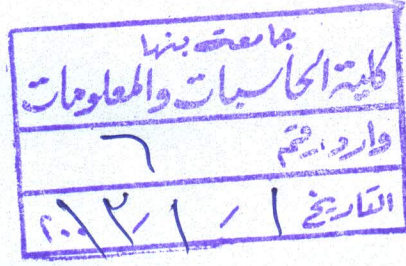 جامعة بنها
كلية الحاسبات والمعلومات
وارد رقم ٦
التاريخ ١ / ١ / ٢٠١٣